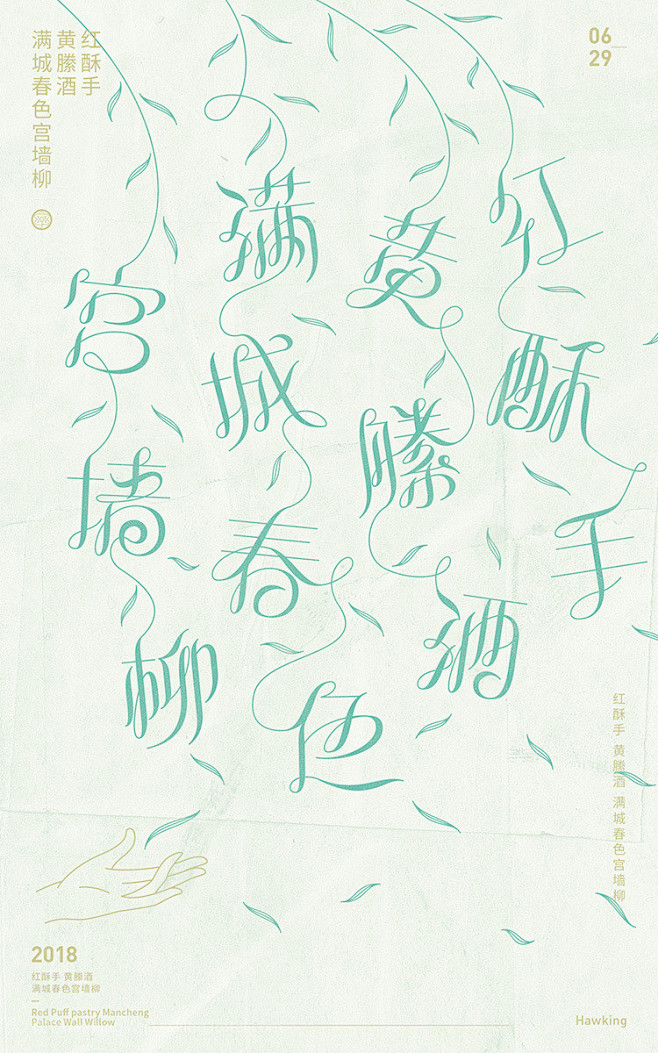 红酥手
黄縢酒
满城春色宫墙柳
06
29
红酥手
黄縢酒
满城春色
宫墙柳
红酥手 黄縢酒 满城春色宫墙柳
2018
红酥手 黄縢酒
满城春色宫墙柳
Red Puff pastry Mancheng
Palace Wall Willow
Hawking